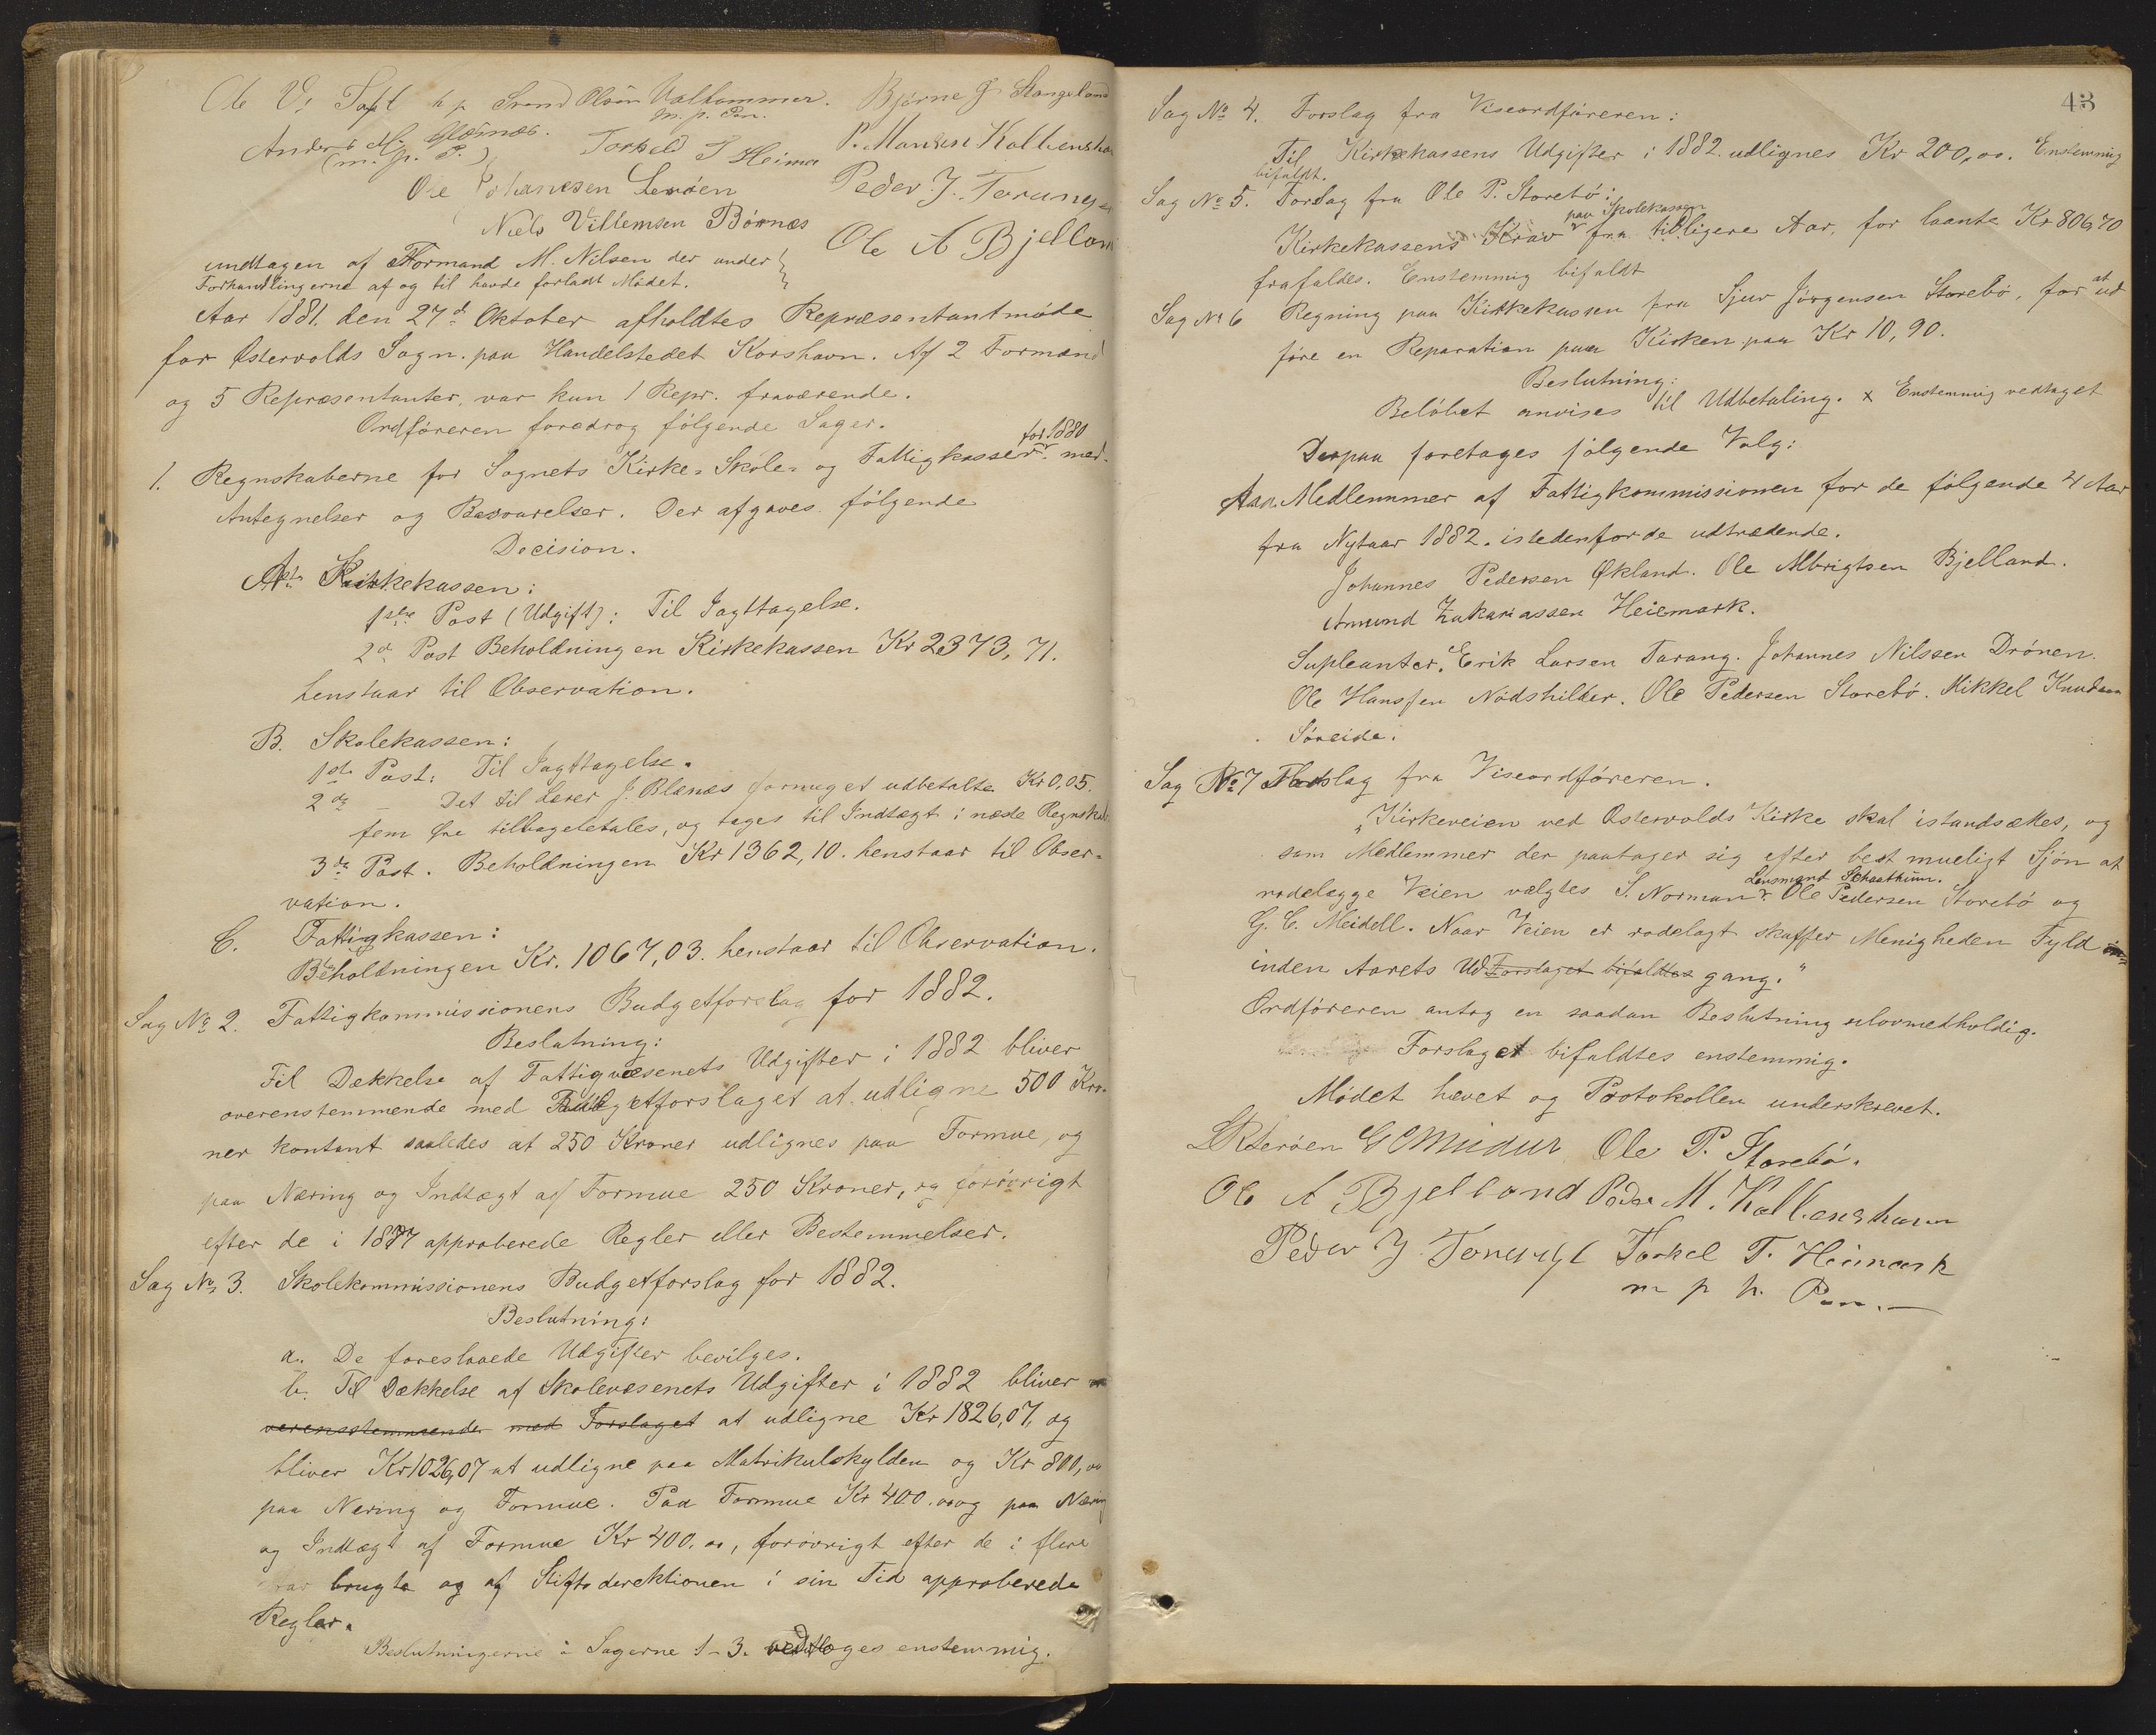 Ole V. Tøft h. p. Svend Olsøn Valhammer. Bjørne J Stangeland
m. p. Pen.
Anders M. Glesnæs. Torkeld T Heima P. Monsen Kolbensha
(m. p. P.)
Ole Johanesen Lerøen Peder J. Torung
Niels Villemsen Börnæs Ole A Bjellan
undtagen af Formand M. Nilsen der under
Forhandlingerne af og til havde forladt Mødet.
Aar 1881 den 27d Oktober afholdtes Repræsentantmøde
for Østervolds Sogn. paa Handelstedet Korshavn. Af 2 Formænd
og 5 Repræsentanter, var kun 1 Repr. fraværende.
Ordføreren foredrog følgende Sager.
for 1880
1. Regnskaberne for Sognets Kirke- Skole- og Fattigkasser med
Antegnelser og Besvarelser. Der afgaves følgende
Decision.
A. Kirkekassen:
1ste Post (Udgift): Til Iagttagelse.
2d Post Beholdningen Kirkekassen Kr 2373,71.
henstaar til Observation.
B. Skolekassen:
1ste Post: Til Iagttagelse.
2den — Det til Lærer J. Blænæs formeget udbetalte Kr 0,05.
fem Øre tilbagebetales, og tages til Indtægt i næste Regnskab
3die Post. Beholdningen Kr 1362,10. henstaar til Obser-
vation.
C. Fattigkassen:
Beholdningen Kr. 1067,03. henstaar til Observation.
Sag No 2. Fattigkommissionens Budgetforslag for 1882.
Beslutning:
Til Dækkelse af Fattigvæsenets Udgifter i 1882 bliver
overenstemmende med Budgetforslaget at udligne 500 Kro-
ner kontant saaledes at 250 Kroner udlignes paa Formue, og
paa Næring og Indtægt af Formue 250 Kroner, og forøvrigt
efter de i 1877 approberede Regler eller Bestemmelser.
Sag No 3. Skolekommissionens Budgetforslag for 1882.
Beslutning:
a. De foreslaaede Udgifter bevilges.
b. Til Dækkelse af Skolevæsenets Udgifter i 1882 bliver o
verensstemmende med Forslaget at udligne Kr 1826,07, og
bliver Kr 1026,07 at udligne paa Matrikulskylden og Kr 800,00
paa Næring og Formue. Paa Formue Kr 400.00 og paa Næring
og Indtægt af Formue Kr 400.00, forøvrigt efter de i flere
Aar brugte og af Stiftsdirektionen i sin Tid approberede
Regler.
Beslutningerne i Sagerne 1-3. vedtoges enstemmig.
43
Sag No 4. Forslag fra Viseordføreren:
Til Kirkekassens Udgifter i 1882 udlignes Kr 200,00. Enstemmig
bifaldt.
Sag No 5. Forslag fra Ole P. Storebø:
paa Skolekassen
Kirkekassens Krav fra tidligere Aar, for laante Kr 806,70
frafaldes. Enstemmig bifaldt
Sag No 6 Regning paa Kirkekassen fra Sjur Jørgensen Storebø, for at ud
føre en Reparation paa Kirken paa Kr 10,90.
Beslutning:
Beløbet anvises til Udbetaling. x Enstemmig vedtaget
Derpaa foretages følgende Valg:
Medlemmer af Fattigkommissionen for de følgende 4 Aar
fra Nytaar 1882. istedenfor de udtrædende.
Johannes Pedersen Økland. Ole Albrigtsen Bjelland.
Amund Zakariassen Heiemark.
Supleanter. Erik Larsen Tarang. Johannes Nilssen Drønen.
Ole Hanssen Nødshilder. Ole Pedersen Storebø. Mikkel Knudsen
Søreide.
Sag No 7 Forslag fra Viseordføreren.
„Kirkeveien ved Ostervolds Kirke skal istandsættes, og
som Medlemmer der paatager sig efter best mueligt Sjøn at
Lensmand Schaathun.
rodelægge Veien valgtes S. Norman Ole Pedersen Storebø og
G. C. Meidell. Naar Veien er rodelagt skaffer Menigheden Fyld in=
inden Aarets Ud Forslaget bifaldtes gang."
Ordføreren antog en saadan Beslutning ulovmedholdig.
Forslaget bifaldtes enstemmig.
Mødet hævet og Protokollen underskrevet.
Lerøen G C Meidell Ole P. Storebø.
Ole A Bjelland Peder M. Kolbenshavn
Peder J Torungl Torkel T. Heimark
m p h. Pen.